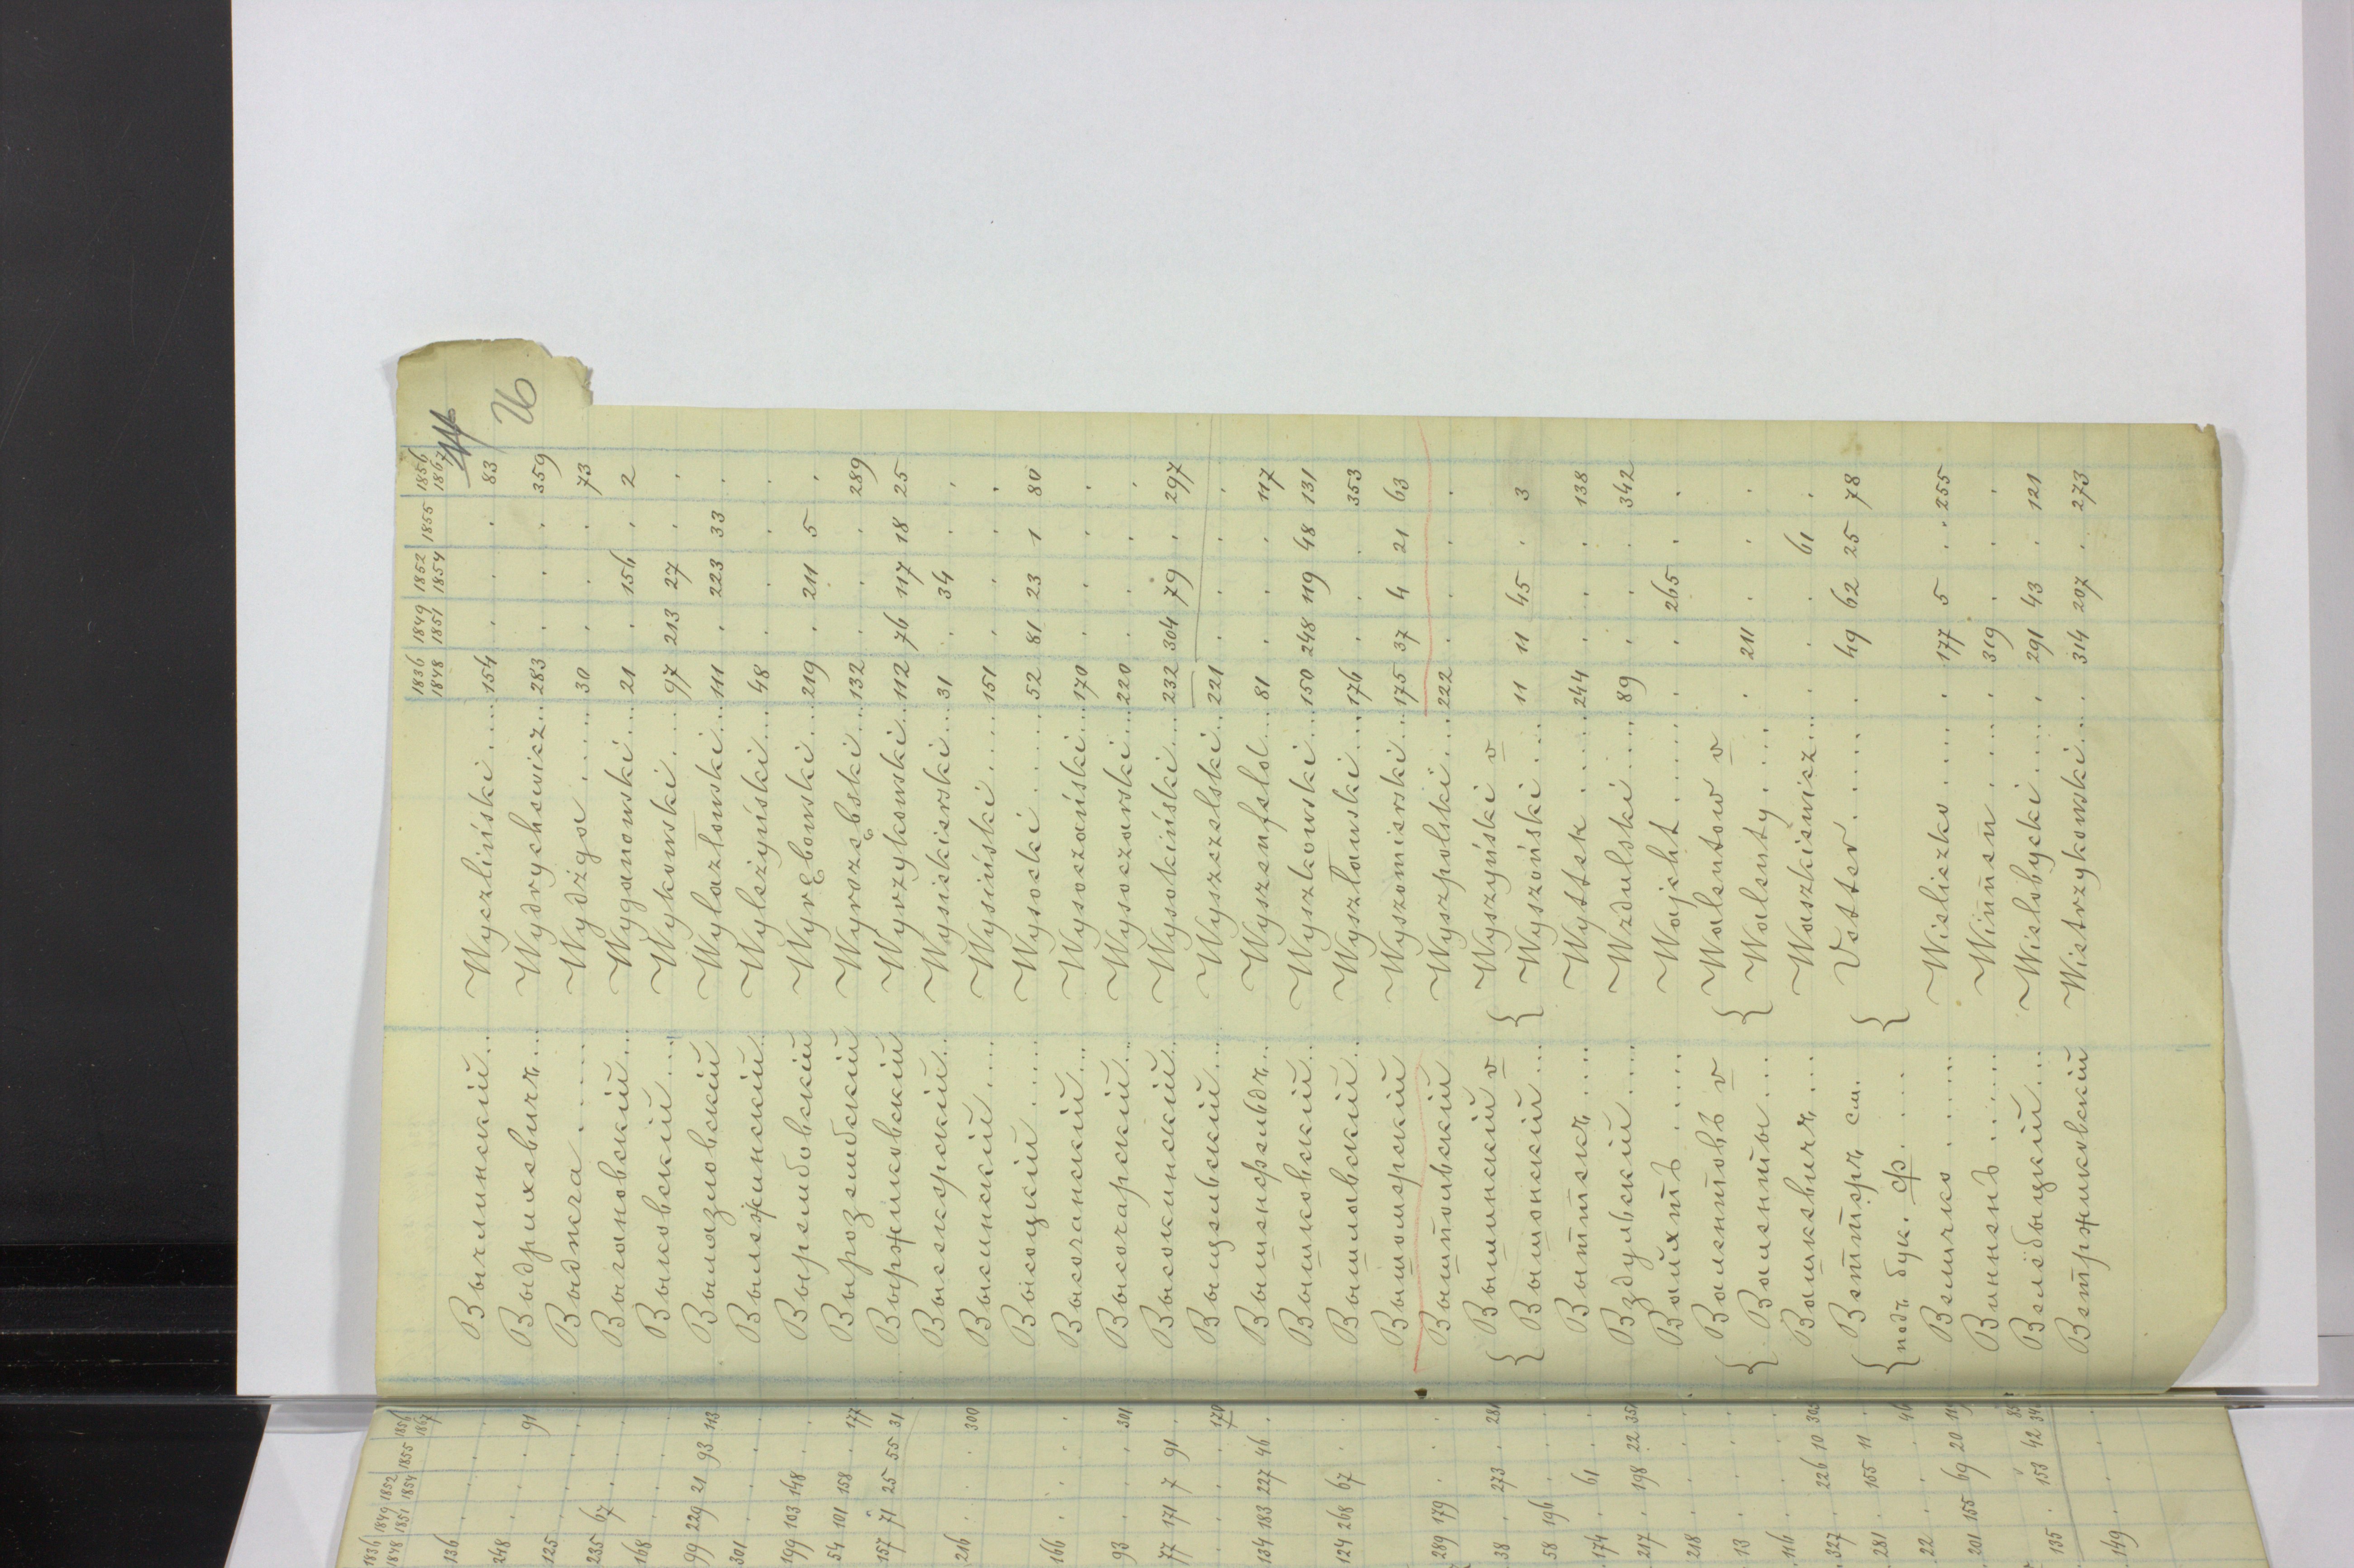 1836 1848 | 1849 1851 | 1852 1854 | 1855 | 1856 1867
26
Вычлинскій... Wyczliński.... 154 . . . 83
Выдрихевичъ... Wydrychewicz.. 283 . . . 359
Выджга ..... Wydżga .... 30 . . . 73
Выгановскій... Wyganowski... 21 . 156 . 2
Выковскій.... Wykowski.... 97 213 27 . .
Вылазловскій Wylazłowski... 111 . 223 33 .
Вылежинскій.. Wyleżyński... 48 . . . .
Вырембовскій Wyrębowski... 219 . 211 5 .
Вырозембскій Wyrozębski... 132 . . . 289
Выржиковскій Wyrzykowski... 112 76 117 18 25
Высекерскій... Wysiekierski... 31 . 34 . .
Высинскій .... Wysiński .... 151 . . . .
Высоцкій ..... Wysocki ..... 52 81 23 1 80
Высочанскій... Wysoczański... 170 . . . .
Высочарскій... Wysoczarski... 220 . . . .
Высокинскій... Wysokiński... 232 304 79 . 297
Выщельскій... Wyszczelski... 221 . . . .
Вышенфельдъ... Wyszenfeld... 81 . . . 117
Вышковскій... Wyszkowski... 150 248 119 48 131
Вышловскій... Wyszławski... 176 . . . 353
Вышомерскій Wyszomierski... 175 37 4 21 63
Выштольскій Wyszpolski... 222 . . . .
{ Вышинскій v { Wyszyński v
Вышонскій... Wyszoński... 11 11 45 . 3
Выттекъ .... Wyttek .... 244 . . . 138
Вздульскій.... Wzdulski.... 89 . . . 342
Вайхтъ ..... Wajcht ..... . . 265 . .
{ Валентовъ v { Walentow v
Валенты.... Walenty.... . 211 . . .
Вашкевичъ ... Waszkiewicz... . . . 61 .
{ Веттеръ см. Vetter ..... . 49 62 25 78
подъ бук. Ф. .... {
Величко ..... Wieliczko .... . 177 5 . 255
Винненъ ..... Winnen .... . 319 . . .
Велёбыцкій... Wielobycki... . 291 43 . 121
Ветржиковскій Wietrzykowski... . 314 207 . 273
1836 1848 | 1849 1851 | 1852 1854 | 1855 | 1856 1867
136 . . . .
248 . . . 91
125 . . . .
235 67 . . .
168 . . . .
99 229 21 93 113
301 . . . .
199 103 148 . .
54 101 158 . 177
157 71 25 55 31
216 . . . 300
166 . . . .
93 . . . 301
77 171 7 91 .
170
134 183 227 46 .
124 268 67 . .
289 179 . . .
38 . 273 . 281
58 196 . . .
174 . 61 . .
217 . 198 22
218 . . . .
13 . . . .
116 . . . .
327 . 226 10
281 . 105 11 .
22 . . .
201 155 69 20
135 . 153 42
149 . . . .